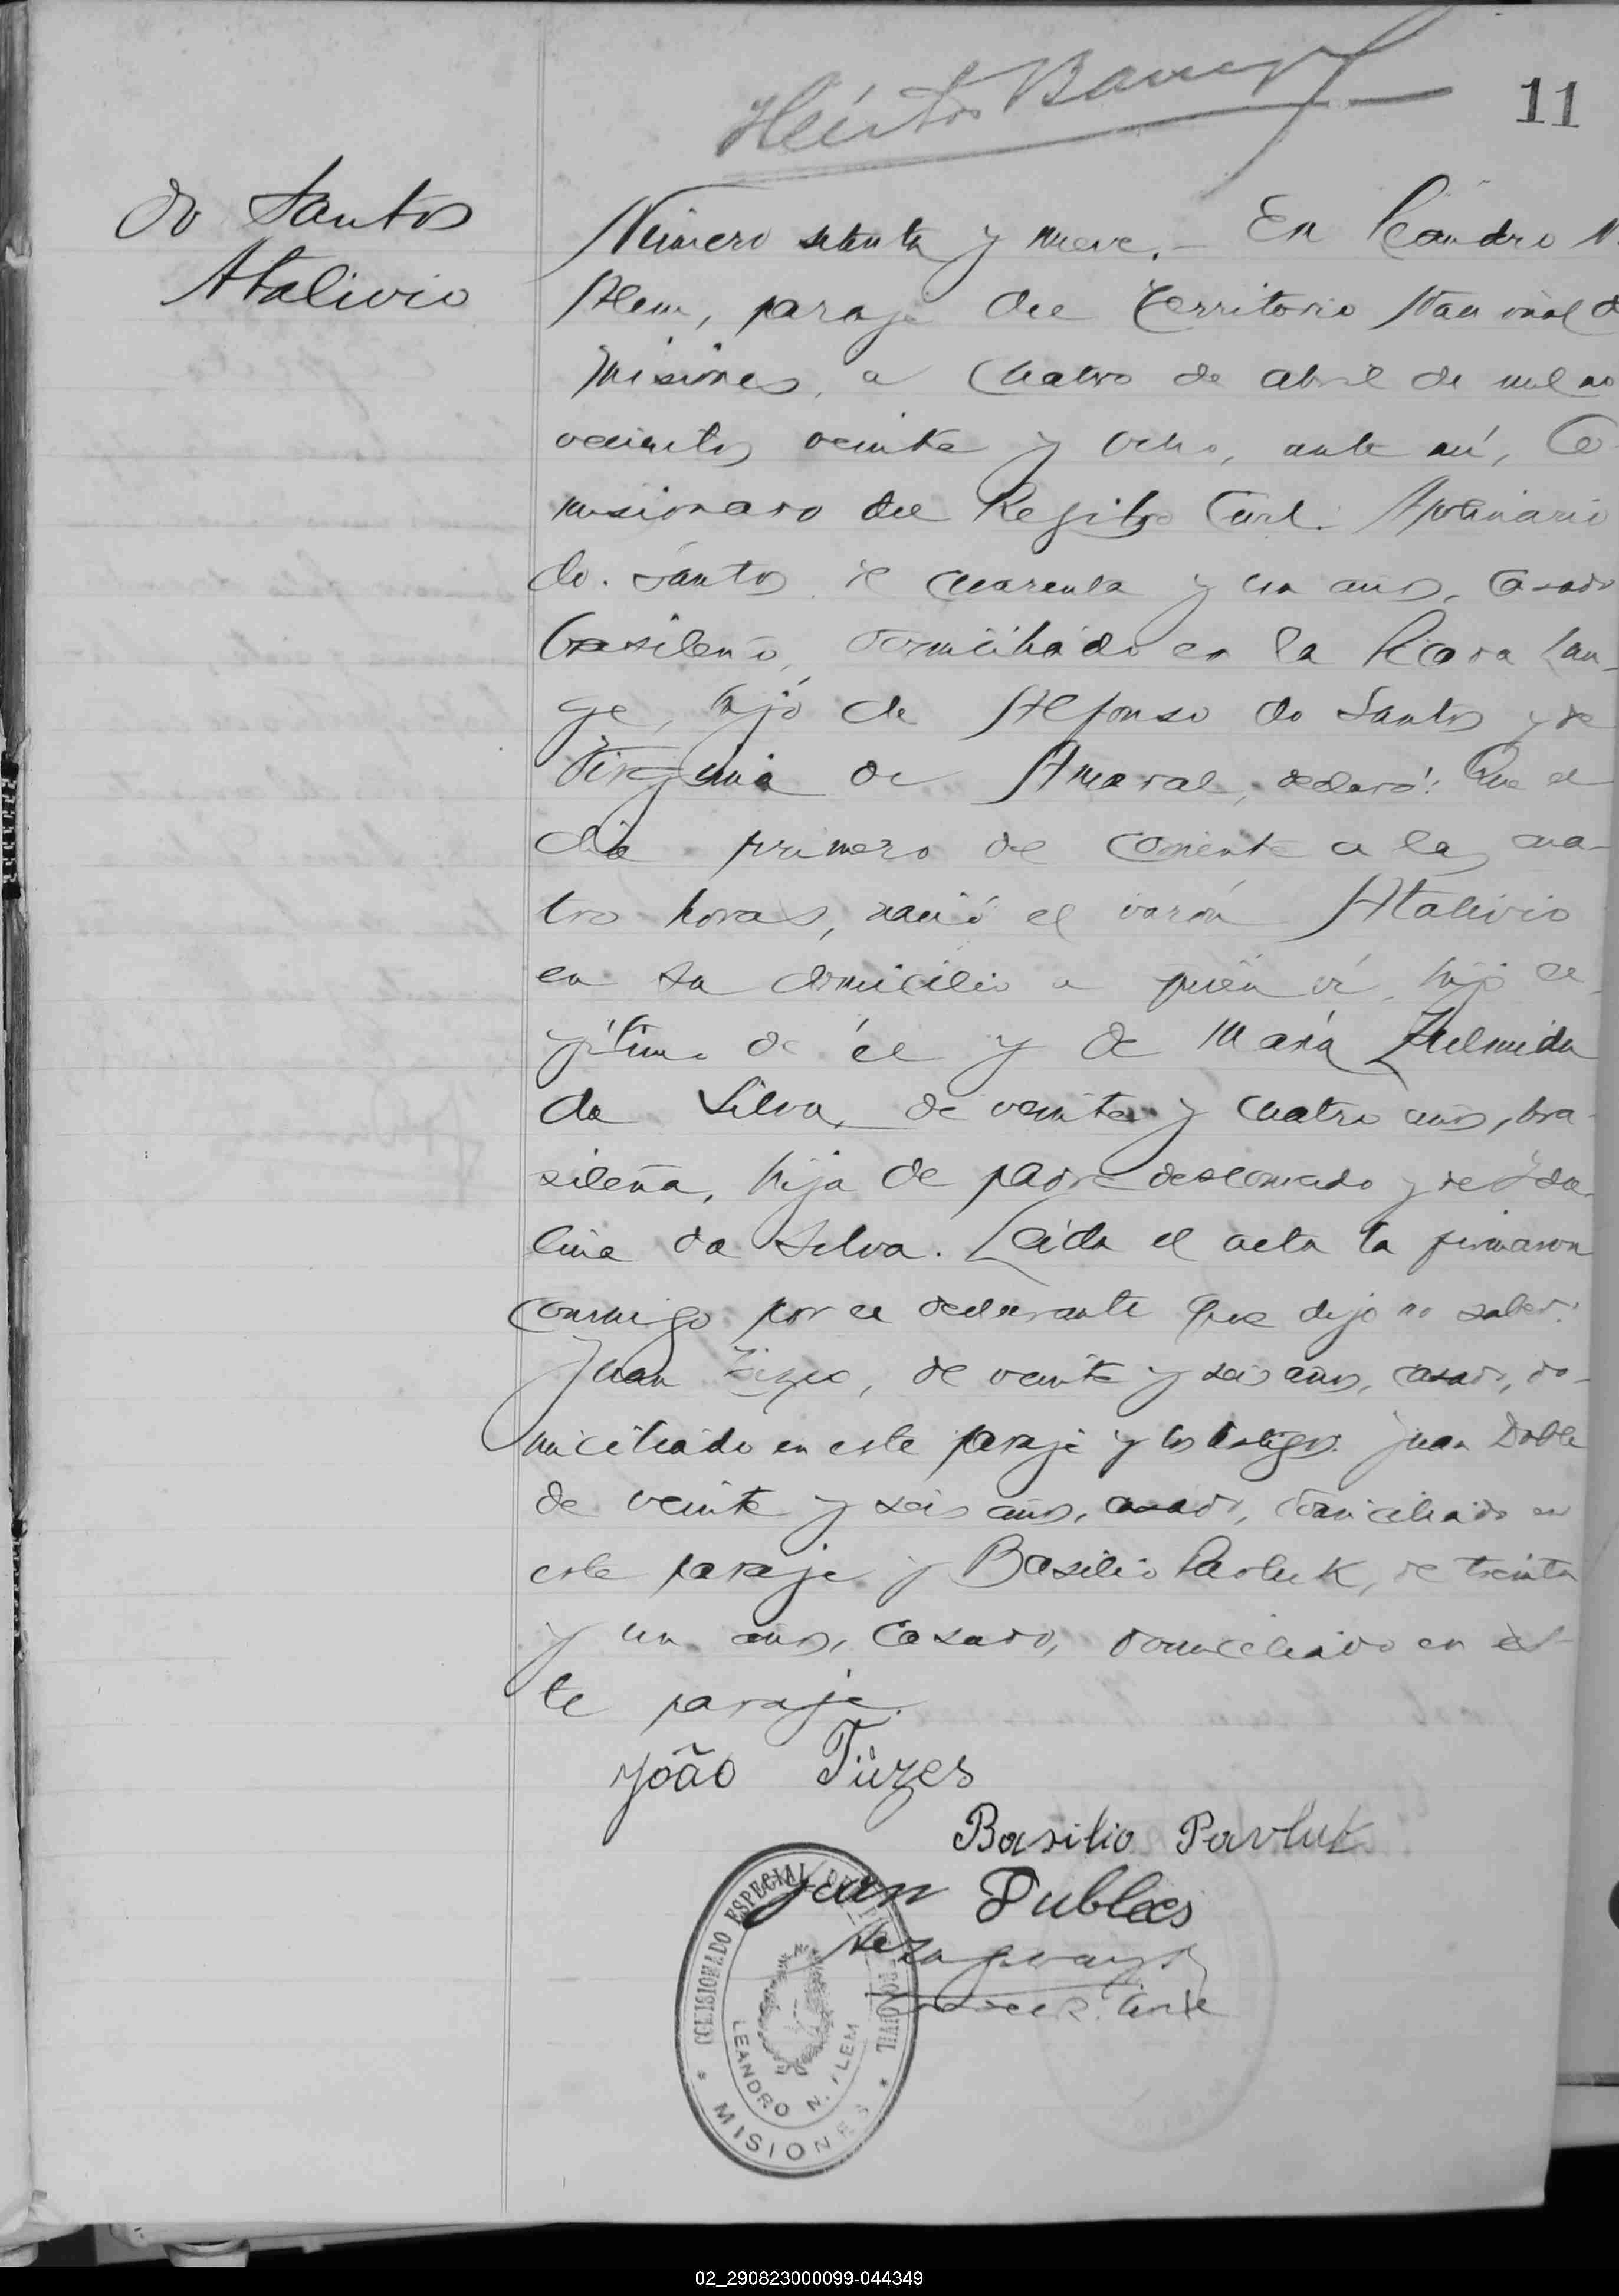 11
do Santos
Atalivio
Número setenta y nueve.- En Leandro N
Alem, paraje del Territorio Nacional d
Misiones, a cuatro de abril de mil no
vecientos veinte y ocho, ante mí, Co
misionado del Registro Civil: Apolinario
do Santos de cuarenta y un años, casado
brasileño, domiciliado en la Picada Lan-
ge, hijo de Alfonso do Santos y de
Virginia de Amaral, declaró: Que el
día primero del corriente a las cua-
tro horas, nació el varón Atalivio
en su domicilio a quien vi, hijo le
gítimo de él y de María Zulmida
da Silva, de veinte y cuatro años, bra-
sileña, hija de padre desconocido y de Ida
lina da Silva. Leída el acta la firmaron
conmigo por el declarante que dijo no saber:
Juan de veinte y seis años, casado, do-
miciliado en este paraje y los testigos: Juan Doble
de veinte y seis años, casado, domiciliado en
este paraje y Basilio Pavluk, de treinta
y un años, casado, domiciliado en es-
te paraje.
João Tüzes
Basilio Pavluk
Juan Dublees
COMISIONADO ESPECIAL DEL REGISTRO CIVIL
LEANDRO N. ALEM
* MISIONES *
02_290823000099-044349